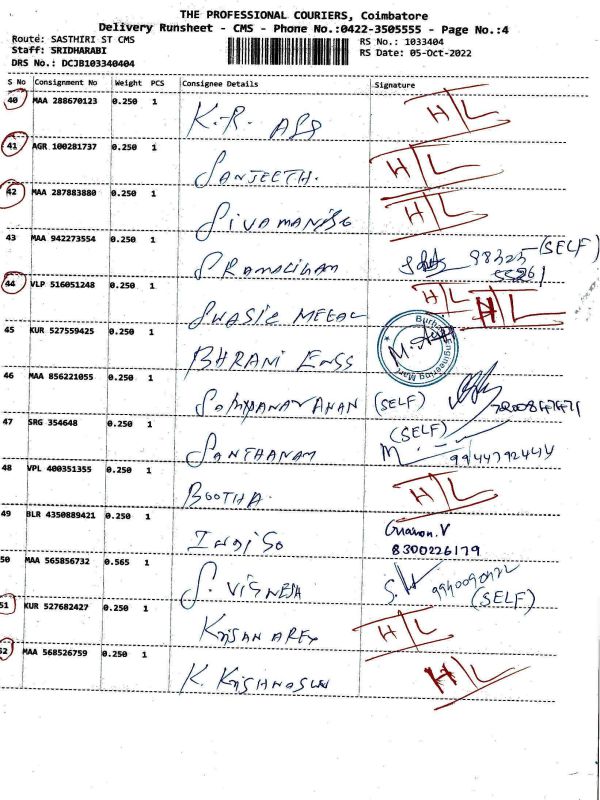 THE PROFESSIONAL COURIERS, Coimbatore
Delivery Runsheet - CMS - Phone No.:0422-3505555 - Page No.:4
Route: SASTHIRI ST CMS
Staff: SRIDHARABI
DRS No.: DCJB103340404
RS No.: 1033404
RS Date: 05-Oct-2022
S No Consignment No Weight PCS Consignee Details Signature
40 MAA 288670123 0.250 1 K.R. H/L
41 AGR 100281737 0.250 1 SANJEETH. H/L
42 MAA 287883880 0.250 1 H/L
43 MAA 942273554 0.250 1 98325 (SELF)
44 VLP 516051248 0.250 1 H/L H/L
45 KUR 527559425 0.250 1 BHRANI ENGG
46 MAA 856221055 0.250 1 (SELF)
47 SRG 354648 0.250 1 SANTHANAM (SELF) 9944792444
48 VPL 400351355 0.250 1 BOOTHA. H/L
49 BLR 4350889421 0.250 1 8300226179
50 MAA 565856732 0.565 1 S. VIGNESH (SELF)
51 KUR 527682427 0.250 1 H/L
52 MAA 568526759 0.250 1 H/L